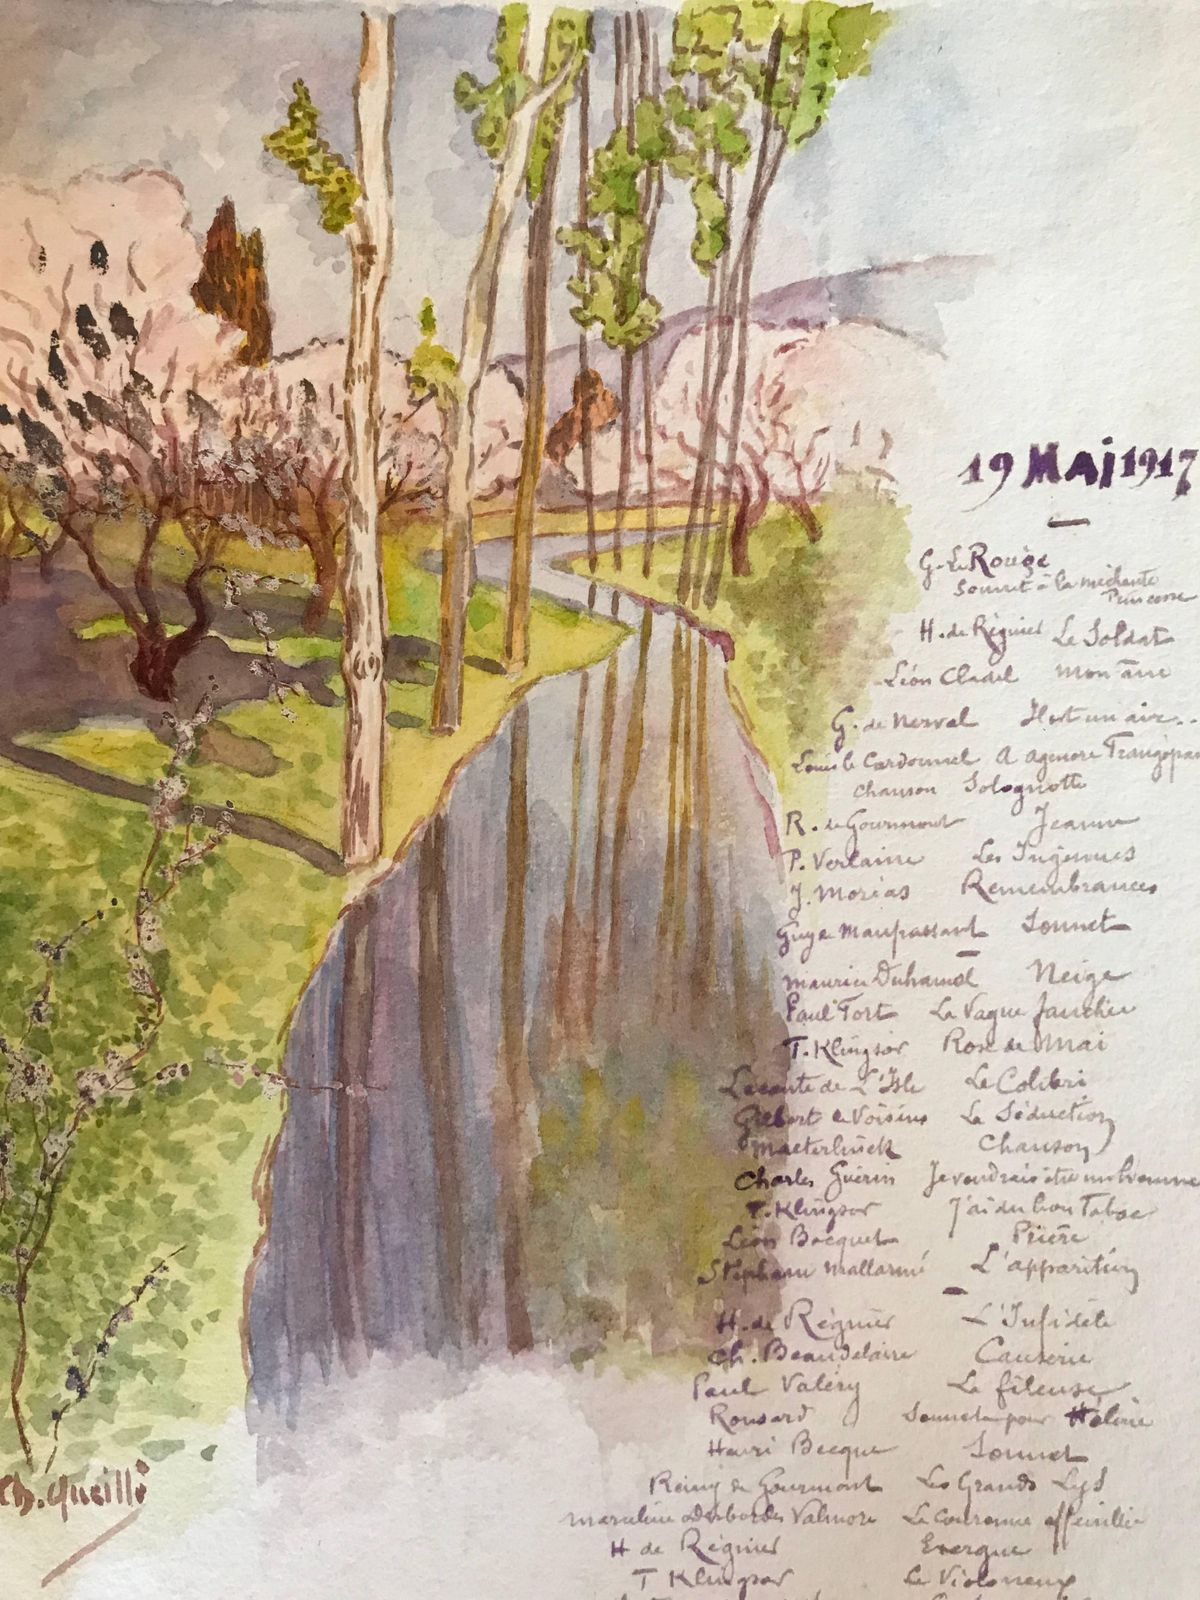 19 MAi 1917
G. Le Rouge
Sonnet à la méchante
Princesse
H. de Règnier Le Soldat
Léon Cladel Mon âne
G. de Nerval Il est un air..
Louis le Cardonnel A Agenore
Chanson Solognotte
R. de Gourmont Jeanne
P. Verlaine Les Ingénues
J. Moréas Remembrances
Guy de Maupassant Sonnet
Maurice Duhamel Neige
Paul Fort La Vague
T. Klingsor Rose de Mai
Leconte de L'Isle Le Colibri
Gilbert de Voisins La Séduction
Maeterlinck Chanson
Charles Guérin Je voudrais être un homme
T. Klingsor J'ai du bon Tabac
Léon Bocquet Prière
Stéphane Mallarmé L'apparition
H. de Règnier L'Infidèle
Ch. Beaudelaire Causerie
Paul Valéry La fileuse
Ronsard Sonnet pour Hélène
Henri Becque Sonnet
Remy de Gourmont Les Grands Lys
Marceline Desbordes Valmore La Couronne effeuillée
H de Règnier Exergue
T Klingsor Le Violoneux
Ch. Queilli